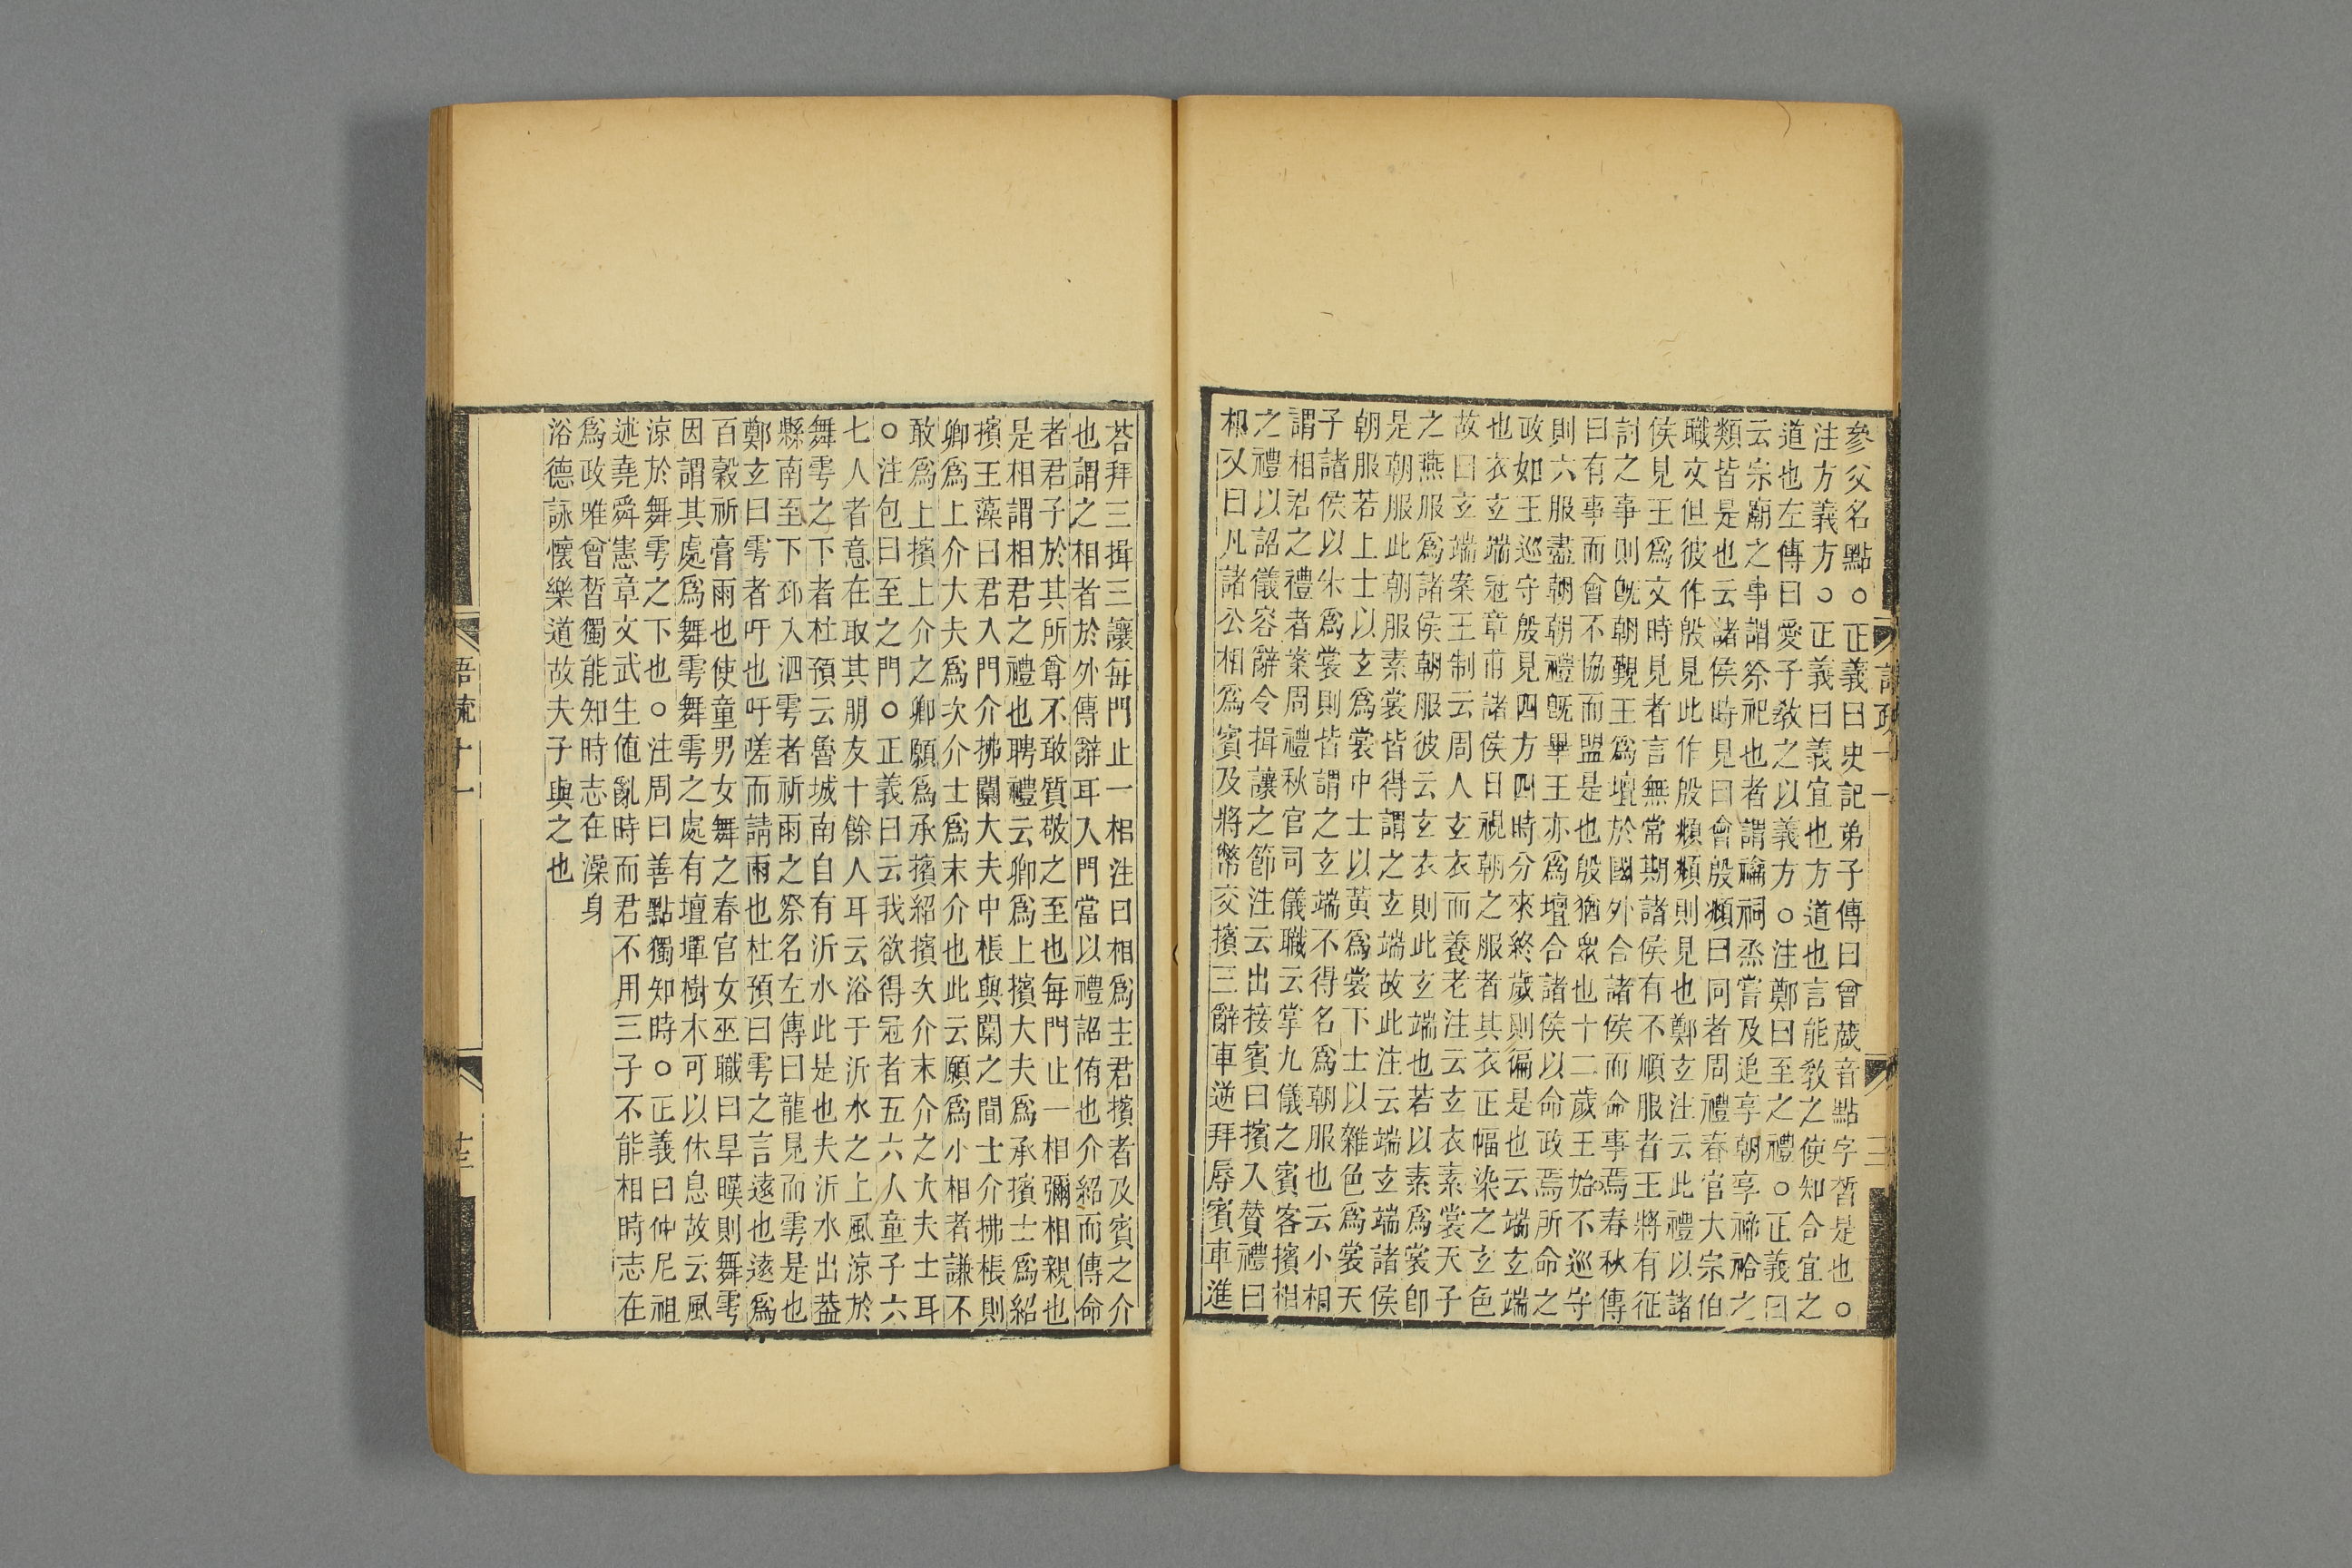 參父名點○正義曰史記弟子傳曰曾蒧音點字皙是也○
注方義方○正義曰義宜也方道也言能教之使知合宜之
道也左傳曰愛子教之以義方○注鄭曰至之禮○正義曰
云宗廟之事謂祭祀也者謂禴祠烝嘗及追享朝享禘祫之
類皆是也云諸侯時見曰會殷頫曰同者周禮春官大宗伯
職文但彼作殷見此作殷頫頫則見也鄭玄注云此禮以諸
侯見王爲文時見者言無常期諸侯有不順服者王將有征
討之事則旣朝覲王爲壇於國外合諸侯而命事焉春秋傳
曰有事而會不協而盟是也殷猶衆也十二歲王始不巡守
則六服盡朝朝禮旣畢王亦爲壇合諸侯以命政焉所命之
政如王巡守殷見四方四時分來終歲則徧是也云端玄端
也衣玄端冠章甫諸侯日視朝之服者其衣正幅染之玄色
故曰玄端案王制云周人玄衣而養老注云玄衣素裳天子
之燕服爲諸侯朝服彼云玄衣則此玄端也若以素爲裳卽
是朝服此朝服素裳皆得謂之玄端故此注云端玄端諸侯
朝服若上士以玄爲裳中士以黃爲裳下士以雜色爲裳天
子諸侯以朱爲裳則皆謂之玄端不得名爲朝服也云小相
謂相君之禮者案周禮秋官司儀職云掌九儀之賓客擯相
之禮以詔儀容辭令揖讓之節注云出接賓曰擯入贊禮曰
相又曰凡諸公相爲賓及將幣交擯三辭車逆拜辱賓車進
荅拜三揖三讓每門止一相注曰相爲主君擯者及賓之介
也謂之相者於外傳辭耳入門當以禮詔侑也介紹而傳命
者君子於其所尊不敢質敬之至也每門止一相彌相親也
是相謂相君之禮也聘禮云卿爲上擯大夫爲承擯士爲紹
擯玉藻曰君入門介拂闑大夫中棖與闑之間士介拂棖則
卿爲上介大夫爲次介士爲末介也此云願爲小相者謙不
敢爲上擯上介之卿願爲承擯紹擯次介末介之大夫士耳
○注包曰至之門○正義曰云我欲得冠者五六人童子六
七人者意在取其朋友十餘人耳云浴于沂水之上風涼於
舞雩之下者杜預云魯城南自有沂水此是也夫沂水出蓋
縣南至下邳入泗雩者祈雨之祭名左傳曰龍見而雩是也
鄭玄曰雩者吁也吁嗟而請雨也杜預曰雩之言遠也遠爲
百穀祈膏雨也使童男女舞之春官女巫職曰旱暵則舞雩
因謂其處爲舞雩舞雩之處有壇墠樹木可以休息故云風
涼於舞雩之下也○注周曰善點獨知時○正義曰仲尼祖
述堯舜憲章文武生値亂時而君不用三子不能相時志在
爲政唯曾皙獨能知時志在澡身
浴德詠懷樂道故夫子與之也
語疏十一